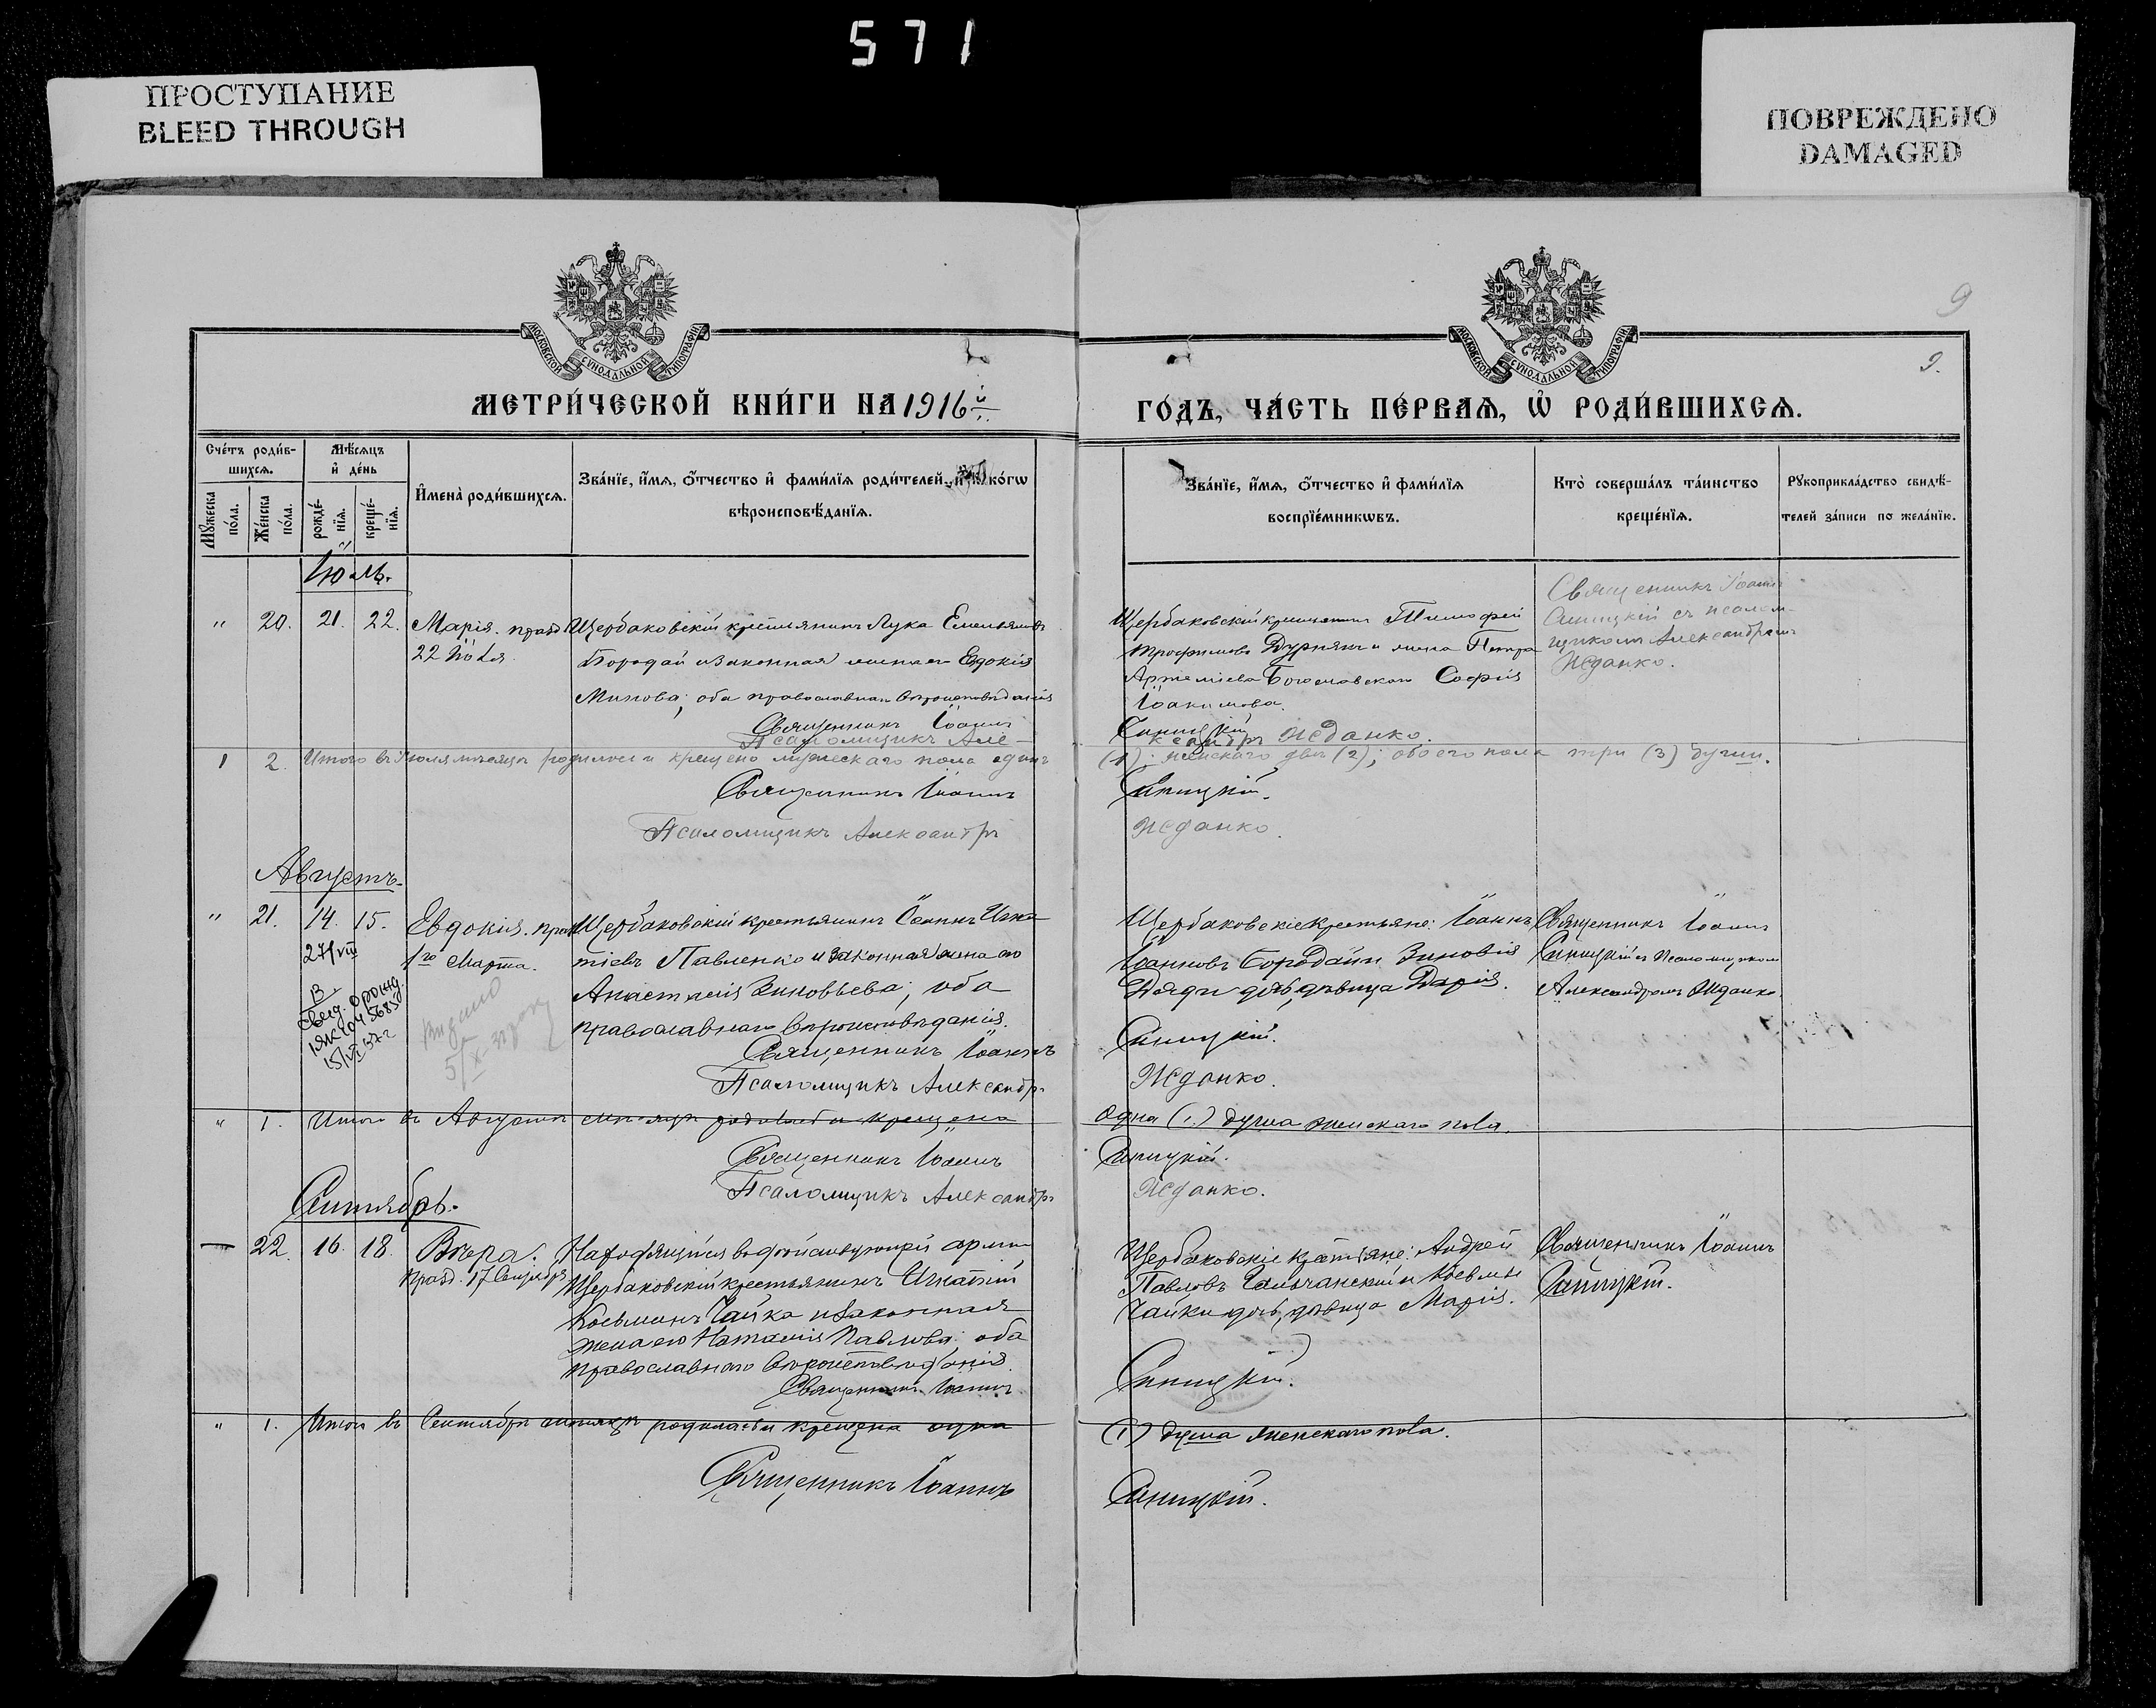 571
ПРОСТУПАНИЕ
BLEED THROUGH
ПОВРЕЖДЕНО
DAMAGED
9
9.
МОСКОВСКОЙ СѴНОДАЛЬНОЙ ТИПОГРАФІИ
МОСКОВСКОЙ СѴНОДАЛЬНОЙ ТИПОГРАФІИ
МЕТРИ́ЧЕСКОЙ КНИ́ГИ НА 1916 й
ГО́ДЪ, ЧА́СТЬ ПЕ́РВАѦ, Ѡ РОДИ́ВШИХСѦ.
Сче́тъ роди́в-
шихсѧ.
Мѣ́сѧцъ
и҆ де́нь
Мꙋ́жеска
по́ла.
Же́нска
по́ла.
рожде́-
нїѧ.
креще́-
нїѧ.
И҆мена̀ роди́вшихсѧ.
Зва́нїе, и҆́мѧ, ѻ҆́тчество и҆ фами́лїѧ роди́телей, и҆ ко́гѡ
вѣроисповѣ́данїѧ.
Зва́нїе, и҆́мѧ, ѻ҆́тчество и҆ фами́лїѧ
воспрїе́мникѡвъ.
Кто̀ соверша́лъ та́инство
креще́нїѧ.
Рꙋкоприкла́дство свидѣ́-
телей за́писи по жела́нїю.
Іюль.
" 20. 21. 22. Марія. празд Щербаковскій крестьянинъ Лука Емельяновъ
22 Іюля. Бородай и законная жена его Евдокія
Минова; оба православнаго вѣроисповѣданія
Священникъ Іоаннъ
Псаломщикъ Але-
Щербаковскій крестьянинъ Тимофей
Трофимовъ Дурнякъ и жена Петра
Артеміева Богомовскаго Софія
Іоакимова.
Синицкій
ксандръ Жданко.
Священникъ Іоаннъ
Синицкій съ псалом-
щикомъ Александромъ
Жданко.
1 2. Итого въ Іюлѣ мѣсяцѣ родилось и крещено мужескаго пола одинъ
(1); женскаго двѣ (2); обоего пола три (3) души.
Священникъ Іоаннъ
Синицкій.
Псаломщикъ Александръ
Жданко.
Августъ.
" 21. 14. 15. Евдокія. празд Щербаковскій крестьянинъ Іоаннъ Игна
27/VIII 1го Марта. тіевъ Павленко и законная жена его
Анастасія Зиновьева; оба
православнаго вѣроисповѣданія.
Священникъ Іоаннъ
Псаломщикъ Александръ
В.
свид. о рожд.
15/VI 37 г
Видано
5/X
Щербаковскіе крестьяне: Іоаннъ
Іоанновъ Бородай и Зиновія
дочь, дѣвица Дарія.
Синицкій.
Жданко.
Священникъ Іоаннъ
Синицкій съ Псаломщикомъ
Александромъ Жданко.
" 1. Итого въ Августѣ мѣсяцѣ родилась и крещена
одна (1.) душа женскаго пола.
Священникъ Іоаннъ
Синицкій.
Псаломщикъ Александръ
Жданко.
Сентябрь.
— 22. 16. 18. Вѣра. Находящійся въ дѣйствующей арміи
празд. 17 Сентября Щербаковскій крестьянинъ Игнатій
Косьминъ Чайка и законная
жена его Наталія Павлова; оба
православнаго вѣроисповѣданія.
Священникъ Іоаннъ
Щербаковскіе крестьяне: Андрей
Павловъ Гальчанскій и Косьмы
Чайки дочь, дѣвица Марія.
Синицкій.
Священникъ Іоаннъ
Синицкій.
" 1. Итого въ Сентябрѣ мѣсяцѣ родилась и крещена одна
(1) душа женскаго пола.
Священникъ Іоаннъ
Синицкій.